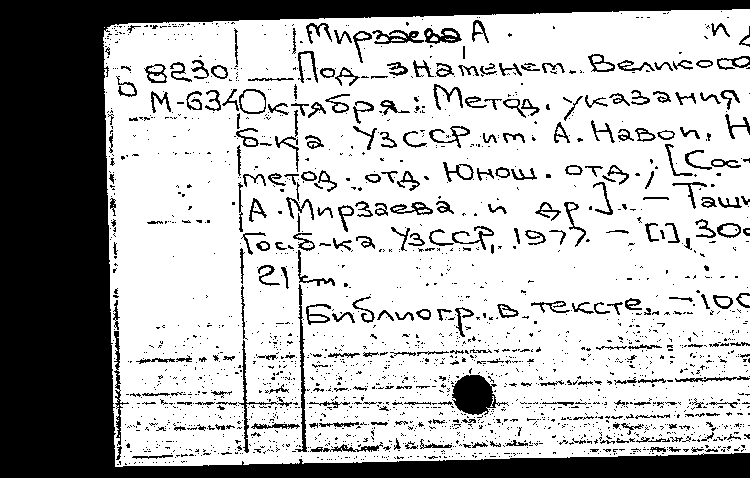 Мирзаева А. и д
Б 8230 Под знаменем Великого
М-634 Октября: Метод. указания
б-ка УзССР им. А. Навои, Н
метод. отд. Юнош. отд.; [Сос
А. Мирзаева и др.]. — Ташк
Гос. б-ка УзССР, 1977. — [1], 30с
21 см.
Библиогр. в тексте. — 100